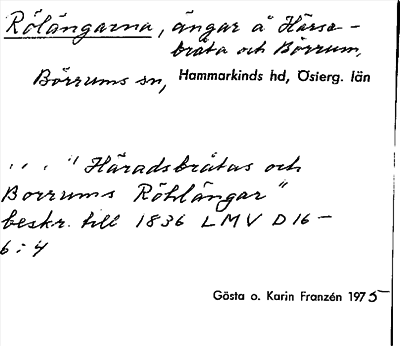 Rölängarna, ängar å Härse-
bråta och Börrum,
Börrums sn, Hammarkinds hd, Österg. län
. . . "Häradsbråtas och
Borrums Röhlängar"
beskr. till 1836 LMV D16-
6:4
Gösta o. Karin Franzén 1975